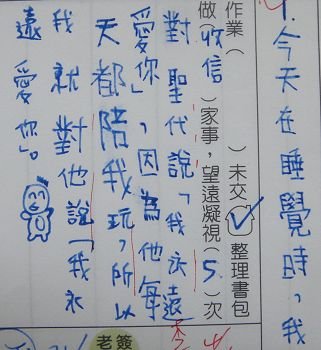 1.今天在睡覺時，我
作業（　）未交（✓）整理書包
做（收信）家事，望遠凝視（5.）次
對聖代說「我永遠
愛你」，因為他每
天都陪我玩，所以
我就對他說「我永
遠愛你」。
老簽